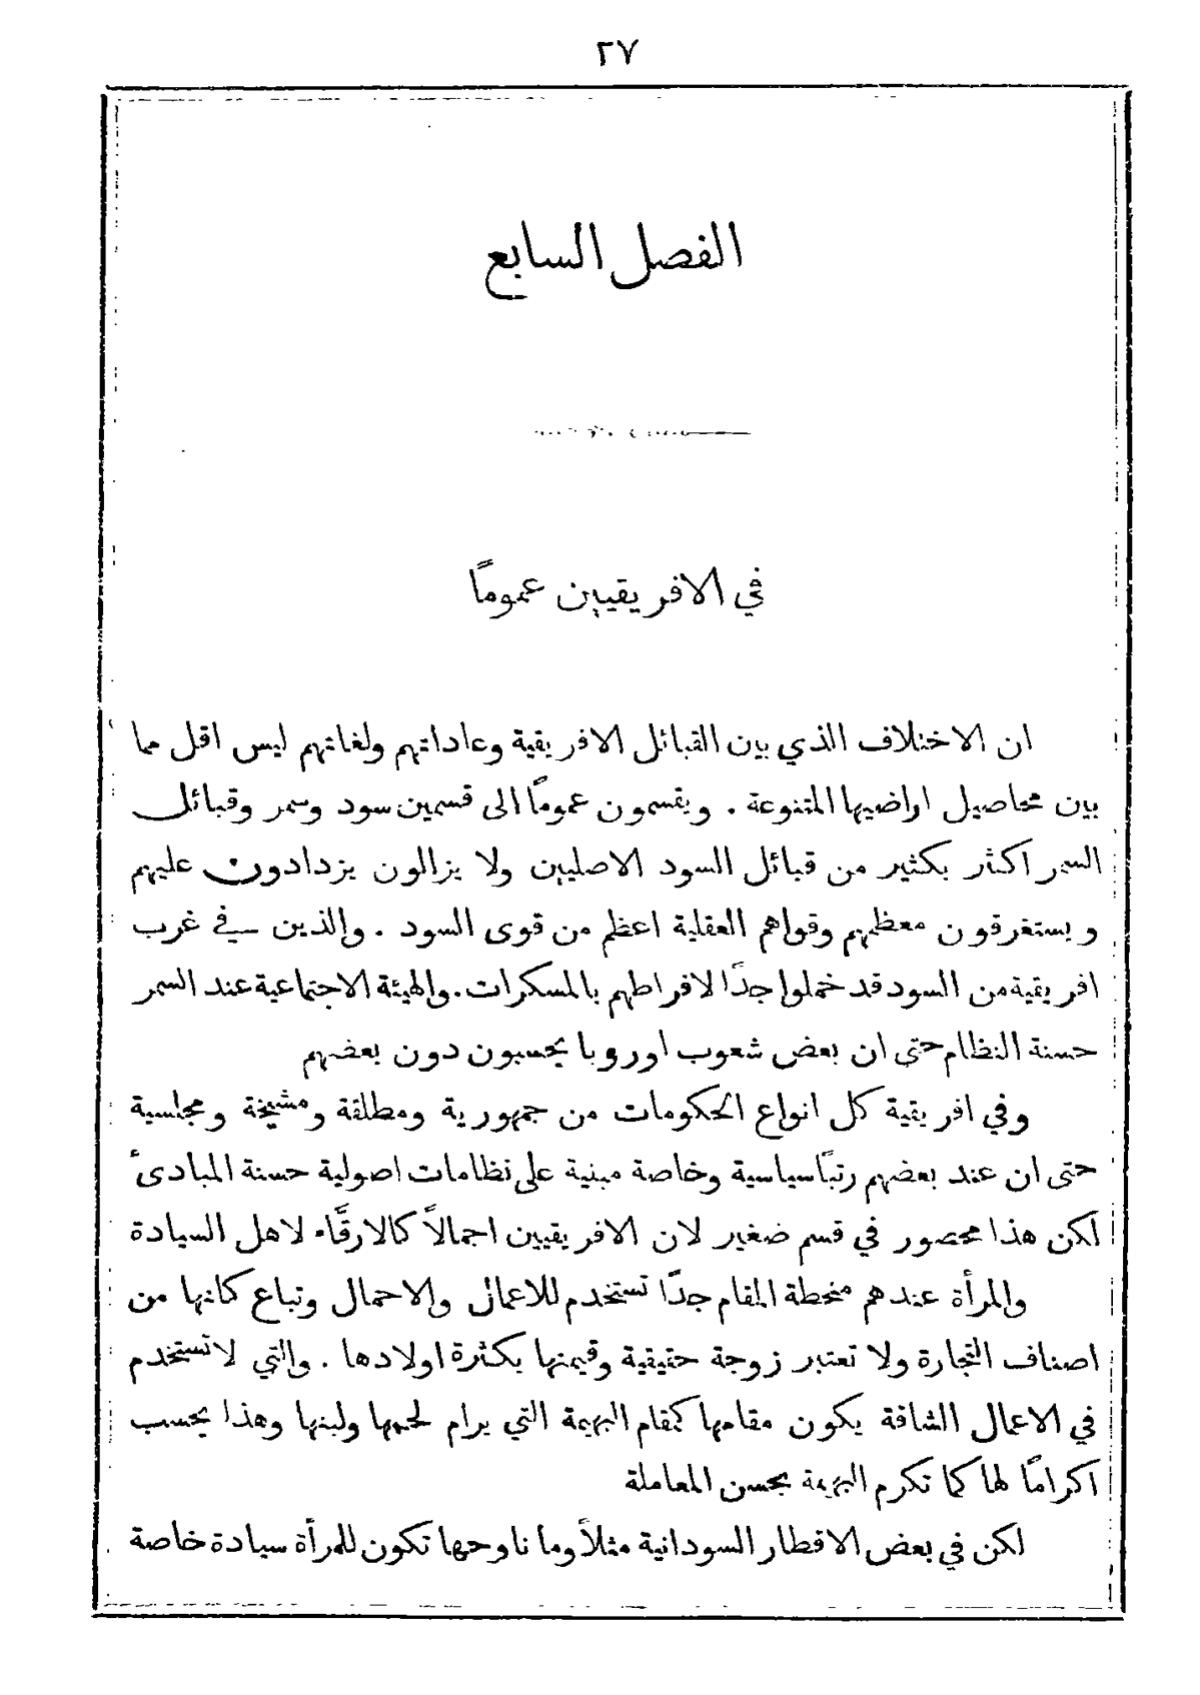 ٢٧
الفصل السابع
في الافريقيين عموماً
ان الاختلاف الذي بين القبائل الافريقية وعاداتهم ولغاتهم ليس اقل مما
بين محاصيل اراضيها المتنوعة . ويقسمون عموماً الى قسمين سود وسمر وقبائل
السمر اكثر بكثير من قبائل السود الاصليين ولا يزالون يزدادون عليهم
ويستغرقون معظمهم وقواهم العقلية اعظم من قوى السود . والذين في غرب
افريقية من السود قد خملوا جدًا لافراطهم بالمسكرات . والهيئة الاجتماعية عند السمر
حسنة النظام حتى ان بعض شعوب اوروبا يحسبون دون بعضهم
وفي افريقية كل انواع الحكومات من جمهورية ومطلقة ومشيخة ومجلسية
حتى ان عند بعضهم رتبًا سياسية وخاصة مبنية على نظامات اصولية حسنة المبادئ
لكن هذا محصور في قسم صغير لان الافريقيين اجمالاً كالارقَّاء لاهل السيادة
والمرأة عندهم منحطة المقام جدًا تستخدم للاعمال والاحمال وتباع كانها من
اصناف التجارة ولا تعتبر زوجة حقيقية وقيمتها بكثرة اولادها . والتي لا تستخدم
في الاعمال الشاقة يكون مقامها كمقام البهيمة التي يرام لحمها ولبنها وهذا يحسب
اكرامًا لها كما تكرم البهيمة بحسن المعاملة
لكن في بعض الاقطار السودانية مثلاً وما ناوحها تكون للمرأة سيادة خاصة